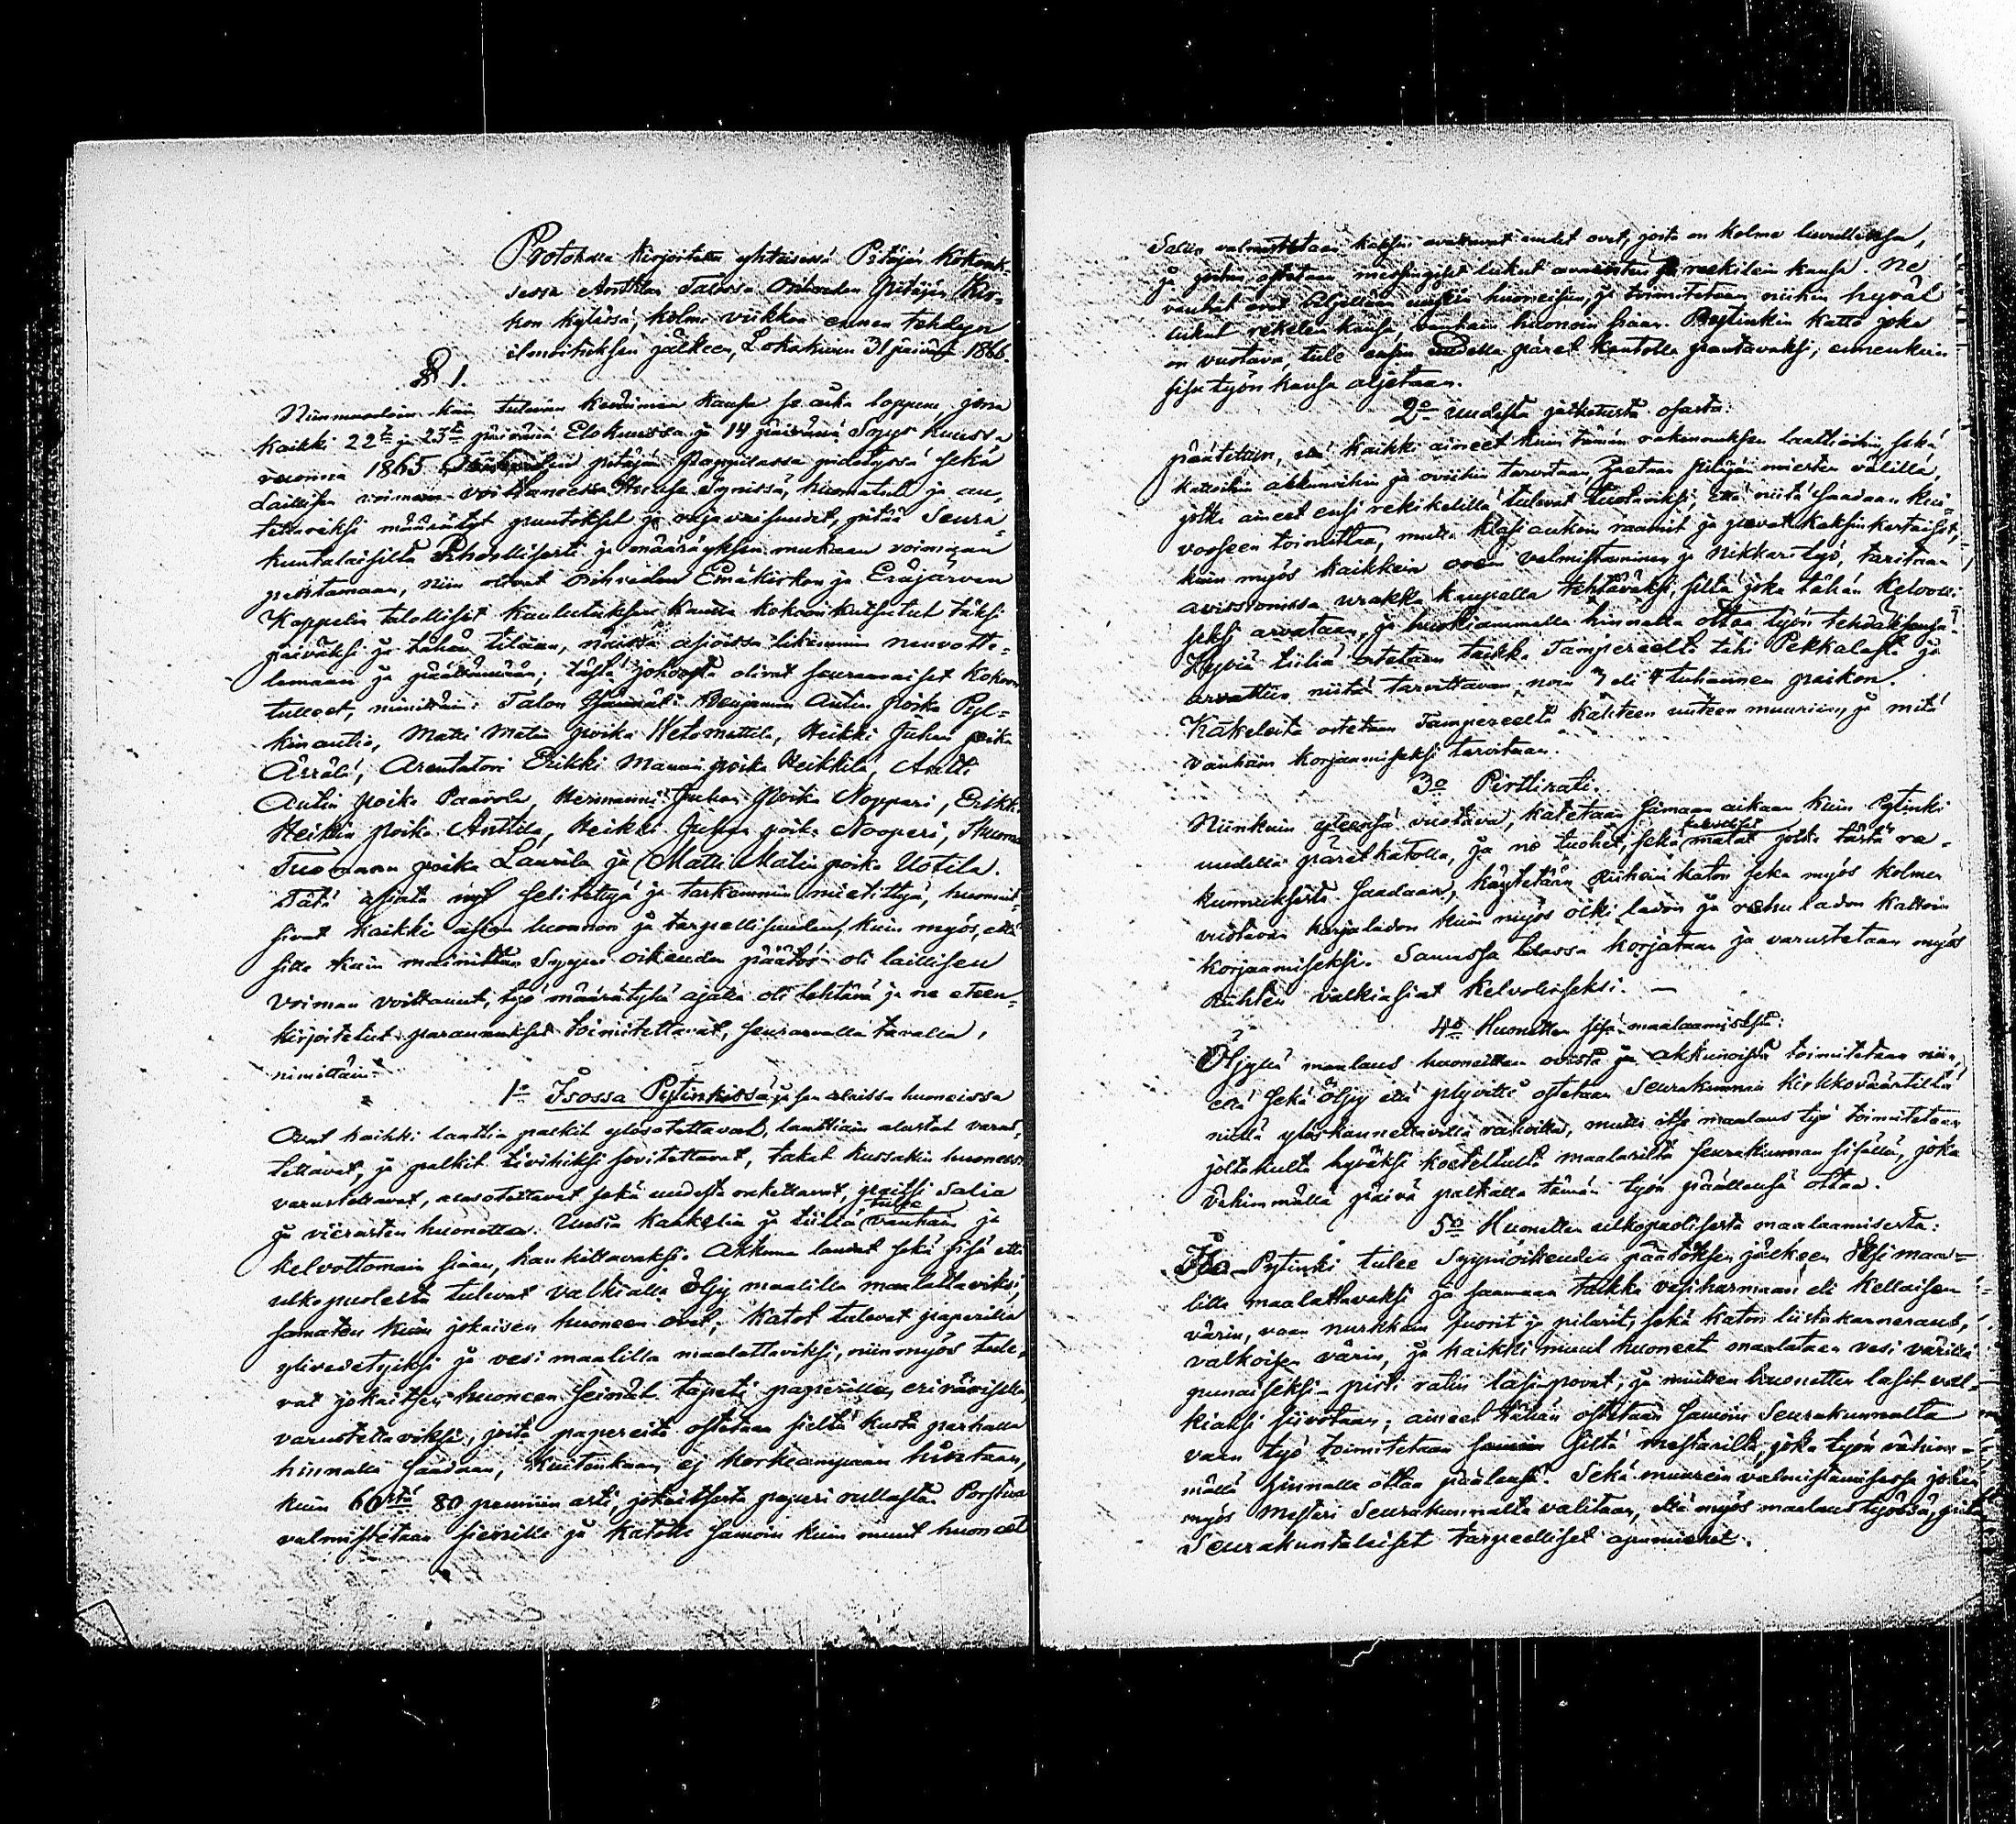 Protokolla kirjoitettu yhteisessä Pitäjän kokouk-
sessa Anttilan Talossa Oriheden pitäjän Kir-
kon kylässä, kolme viikkoa ennen tehdyn
ilmoituksen jälkeen, Lokakuun 31 päivä 1866.
§ 1.
Niinmuodoin kuin tulevan keväimen kansa se aika loppuu, jona
kaikki 22 ja 23 päivänä Elokuussa ja 14 päivänä Syys kuussa
vuonna 1865 pitäjän Pappilassa pidetyssä sekä
Laillisen voiman voittaneessa Huone Synissä, huomatut ja au-
tettaviksi määrätyt puutokset ja vajavaisuudet, pitää Seura-
kuntalaisilta Rehellisesti ja määräyksen mukaan voimaan
pantamaan, niin olivat Oriheden Emäkirkon ja Eräjärven
Kappelin talolliset kuulutuksen kautta kokoon kutsutut täksi
päiväksi ja tähän tilaan, näissä asioissa likemmin neuvotte-
lemaan ja päättämään; tästä johdosta olivat seuraavaiset kokoon
tulleet, nimittäin: Talon Benjamin Antin poika Pyl-
kinantio, Matti Matin poika Wetomattila, Heikki Juhan poika
Ärrälä, Arentatori Erikki Manain poika Heikkilä, Antti
Antin poika Paavola, Hermanni Juhan Poika Noppari, Erikki
Heikin poika Anttila, Heikki Juhan poika Nooperi, Tuomas
Tuomaan poika Laurila ja Matti Matin poika Uotila.
Tätä asiata nyt selitettyä ja tarkemmin mietittyä, huomat-
sivat kaikki asian luonnon ja tarpeellisuuden, kuin myös, että
sitte kuin mainittu Syyni oikeuden päätös oli laillisen
voiman voittanut, työ määrätyllä ajalla oli tehtävä ja ne eteen-
kirjoitetut parannukset toimitettavat, seuraavalla tavalla,
nimittäin:
1o Isossa Pytinkissä ja sen alaissa huoneissa
Ovat kaikki lattia palkit ylösotettavat, lauttiain alustat varus-
tettavat, ja palkit tivihiksi sovitettavat, takat kussakin huoneessa
varustettavat, alasotettavat sekä uudesta rakettavat, paitsi Salia
ja vierasten huonetta. Uusia kaakelia ja tiiliä tulee vanhain ja
kelvottomain siaan, hankittavaksi. Akkuna laudat sekä sisä että
ulko puolelta tulevat valkialla Öljy maalilla maalattaviksi,
samaten kuin jokaisen huoneen ovet; Katot tulevat paperilla
ylivedetyiksi ja vesi maalilla maalattaviksi, niinmyös tule-
vat jokaitsen huoneen seinät tapeti paperilla, eriväriselta,
varustettaviksi, joita papereita ostetaan sieltä kusta parhalla
hinnalla saadaan, kuitenkaan ej korkeampaan hintaan,
kuin 60stä 80 penniin asti, jokaitsesta paperi rullasta. Porstua
valmistetaan sienille ja katolle samoin kuin muut huoneet
Salin valmistetaan kaksin avattavat uudet ovet, joita on kolme luvultansa,
ja joihin ostetaan messingiset lukut avainten ja reekilein kansa. Ne
vanhat ovet huoneisiin, ja toimitetaan niihin hyvät
lukut rekelein kansa, vanhain huonoin siaan. Pytinkin katto joka
on vuotava, tulee ensin uudella päret kautolla pantavaksi, ennenkuin
sisu työn kansa aljetaan.
2o Uudesta jatketusta osasta:
päätettiin, että kaikki aineet kuin tämän rakennuksen lauttioihin, sekä
kattoihin akkunoihin ja oviihin tarvitaan, Jaetaan pitäjän miesten välillä,
jotka aineet ensi rekikelillä tulevat tuotaviksi, että niitä saadaan kui-
vooseen toimittaa, mutta klasi aukoin raamit ja povet kaksinkertaiset,
kuin myös kaikkein ovein valmistaminen ja nikkari työ, taritaan
avissionissa urakka kaupalla tehtäväksi, siltä joka tähän kelvolli-
seksi arvataan, ja huokiammalla hinnalla ottaa työn tehdäksensä.
Hyviä tiiliä ostetaan taikka Tampereelta tahi Pekkalasta ja
arvattiin niitä tarvittavan noin 3 eli 4 tuhannen paikon.
Kakeleita ostetaan Tampereelta kahteen uuteen muuriin, ja mitä
vanhain korjaamiseksi tarvitaan.
3o Pirttirati.
Niinkuin yleensä vuotava, katetaan samaan aikaan kuin Pytinki
uudella päretkatolla, ja ne tuohet, sekä malat jotka tästä ra-
kennuksesta saadaan, käytetään riihein katon seka myös kolmen
vuotavan karjaladon kuin myös olki ladon ja rehu ladon kattoin
korjaamiseksi. Samassa tilassa korjataan ja varustetaan myös
Riihten välkiasiat kelvoliseksi. —
4o Huonetten sisä maalaamisesta:
Öljyllä maalaus huonetten ovista ja akkunoista toimitetaan niin,
että sekä öljy että plyvitti ostetaan Seurakunnan kirkkoväärtiltä
niillä ylöskannettavilla rahoilla, mutta itse maalaus työ toimitetaan
joltakulta hyväksi koetellulta maalarilta seurakunnan sisällä, joka
vähimmällä päivä palkalla tämän työn päällensä ottaa.
5o Huonetten ulkopuolisesta maalaamisesta:
Iso-Pytinki tulee Syynioikeuden päätöksen jälkeen Vesimaa-
lilla maalattavaksi ja saamaan taikka vesiharmaan eli keltaisen
värin, vaan nurkkain vuorit ja pilarit, sekä katon lista karneraus,
valkoisen värin, ja kaikki muut huoneet maalataan vesi värillä
punaiseksi - pirti ratin lasi-povat; ja muitten huonetten lasit val-
kiaksi siivotaan; aineet tähän ostetaan samoin Seurakunnalta
vaan työ toimitetaan siltä mestarilta, joka työn vähim-
mällä hinnalla ottaa päällensä. Sekä muurein valmistamisessa johon
myös Mestari Seurakunnalta valitaan, että myös maalaus työssä, pitää
Seurakuntalaiset tarpeelliset apumiehet.